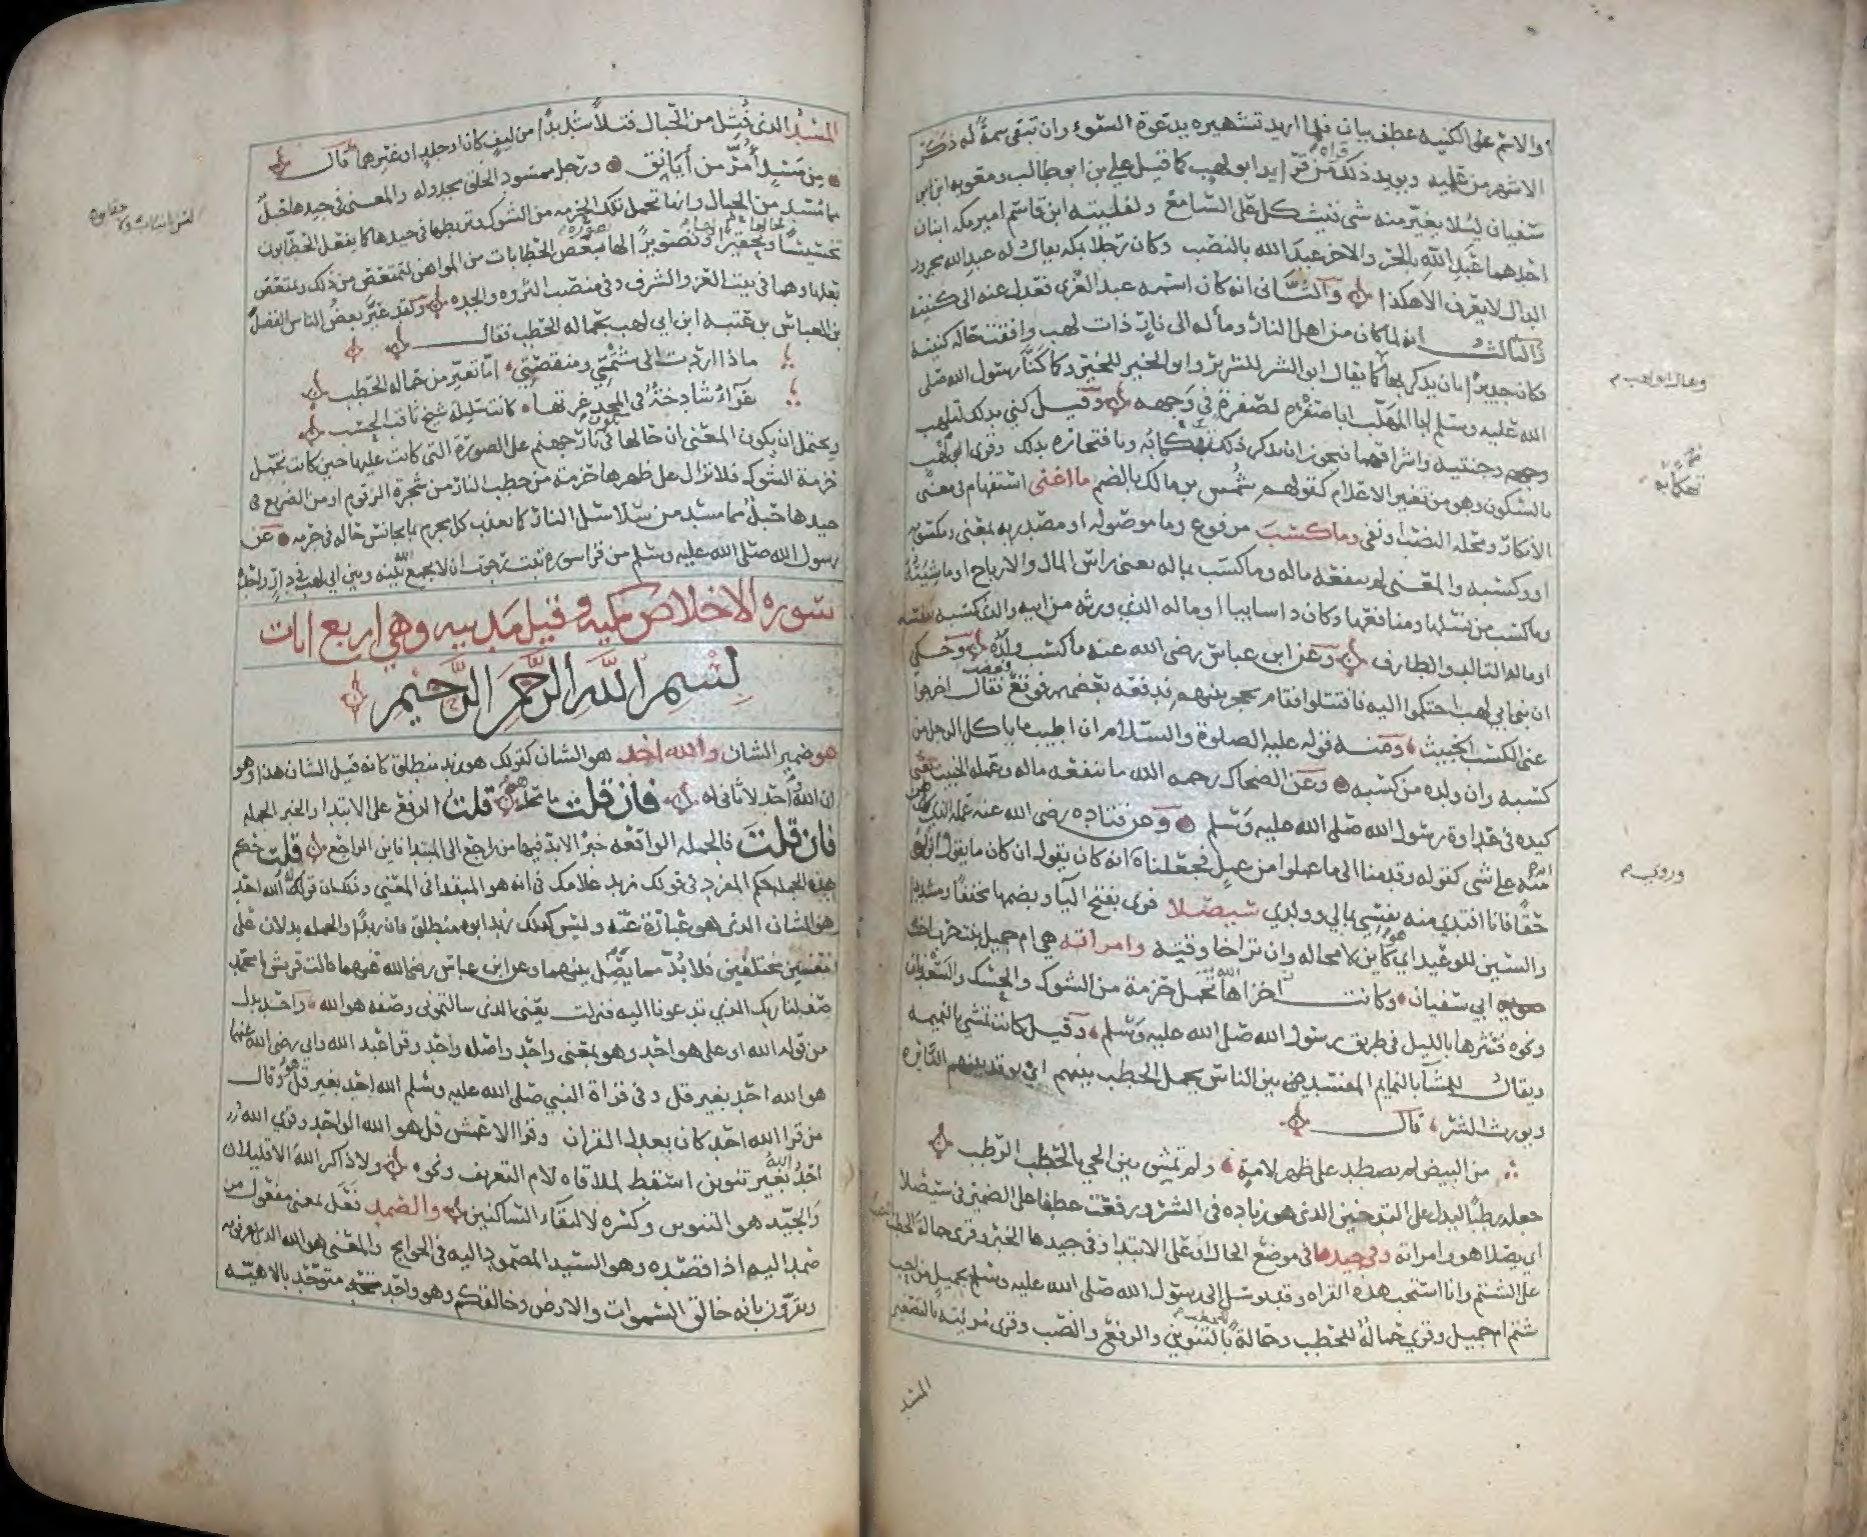 والاسم على الكنيه عطف بيان فلما اريد تشهيره بدعوة السوء وان تبقى سمة له ذكر
الاشهر من علميه ويويد ذلك قراة من قرا يدا ابو لهب كما قيل علي بن ابو طالب ومعويه ابن ابي
سفيان ليلا يغير منه شي فيشكل على السامع ولفليته ابن قاسم امير مكه ابنان
احدهما عبد الله بالجر والاخر عبد الله بالنصب وكان رجلا بمكه يقال له عبد الله بجرور
الدال لا يعرف الا هكذا والثاني انه كان اسمه عبد العزى فعدل عنه الى كنيته
والثالث انه لما كان من اهل النار ومأله الى نار ذات لهب وافقت حاله كنيته
فكان جديرا بان يذكر بها كما يقال ابو الشر للشرير وابو الخير للخير وكما كنا رسول الله صلى
الله عليه وسلم ابا المهلب ابا صفرة لصفرة في وجهه وقيل كني بذلك لتلهب
وجنتيه واشراقهما فيجوز ان يذكر ذلك تهكما به وبافتخاره بذلك وقري ابي لهب
بالسكون وهو من تغيير الاعلام كقولهم شمس بن مالك بالضم ما اغنى استفهام في معنى
الانكار ومحله النصب او نفي وما كسب مرفوع وما موصوله او مصدريه بمعنى ومكسوبه
او وكسبه والمعنى لم ينفعه ماله وما كسب بماله يعني راس المال والارباح او ماشيته
وما كسب من نسلها ومنافعها وكان ذا سابيا او ماله الذي ورثه من ابيه والذي كسبه بنفسه
او ماله التالد والطارف وعن ابن عباس رضي الله عنه ما كسب ولده وحكي
ان بني ابي لهب احتكموا اليه فاقتتلوا فقام يحجز بينهم فدفعه بعضهم فوقع فغضب فقال اخرجوا
عني الكسب الخبيث ومنه قوله عليه الصلوة والسلام ان اطيب ما ياكل الرجل من
كسبه وان ولده من كسبه وعن الضحاك رحمه الله ما ينفعه ماله وعمله الخبيث يعني
كيده في عداوة رسول الله صلى الله عليه وسلم وعن قتاده رضي الله عنه عمله الذي ظن
انه منه على شي كقوله وقدمنا الى ما عملوا من عمل فجعلناه انه كان يقول ان كان ما يقول ابن اخي
حقا فانا افتدي منه نفسي بمالي وولدي سيصلا قري بفتح اليا وبضمها مخففا ومشددا
والسين للوعيد اي هو كاين لا محاله وان تراخا وقته وامراته هي ام جميل بنت حرب اخت
ابي سفيان وكانت تحمل حزمة من الشوك والحسك والسعدان
ونحوه فتنثرها بالليل في طريق رسول الله صلى الله عليه وسلم وقيل كانت تمشي بالنميمه
ويقال للمشا بالنمايم المفسد بين الناس يحمل الحطب بينهم اي يوقد بينهم النايره
ويورث الشر قال
من البيض لم يصطد على ظهر لامة ولم تمش بين الحي بالحطب الرطب
جعله رطبا ليدل على التدخين الذي هو زياده في الشر ورفعت عطفا على الضمير في سيصلا
اي يصلا هو وامراته وفي جيدها في موضع الحال او على الابتدا وفي جيدها الخبر وقري حمالة الحطب نصبا
على الشتم وانا استحب هذه القراه وقد توسل الى رسول الله صلى الله عليه وسلم بجميل من احب
شتم ام جميل وقري حمالة للحطب وحمالة للحطب بالتنوين والرفع والنصب وقري مريئته بالتصغير
المسد
وعال ابو لهب م
تهكما به
وروي م
المسد الذي فتل من الحبال فتلا شديدا من ليف كان او جلد او غيرهما قال
من مسد امر من ايانق ورجل ممسود الخلق مجدوله والمعنى في جيدها حبل
مما مسد من الحبال وانها تحمل تلك الحزمه من الشوك وتربطها في جيدها كما يفعل الحطابون
تخسيسا لحالها وتحقيرا لها وتصويرا لها بصورة بعض الحطابات من المواهن لتمتعض من ذلك ويمتعض
بعلها وهما في بيت العز والشرف وفي منصب الثروه والجده ولقد عير بعض الناس الفضل
بن العباس بن عتبه ابن ابي لهب بحماله الحطب فقال
ماذا اردت الى شتمتي ومنقصتي اما تعير من حماله الحطب
غراء شادخة في المجد غرتها كانت سليله شيخ ثاقب الحسب
ويحتمل ان يكون المعنى ان حالها تكون في نار جهنم على الصورة التي كانت عليها حين كانت تحمل
حزمة الشوك فلا تزال على ظهرها حزمة من حطب النار من شجرة الزقوم او من الضريع وفي
جيدها حبل مما مسد من سلاسل النار كما يعذب كل مجرم بما يجانس حاله في جرمه عن
رسول الله صلى الله عليه وسلم من قرا سورة تبت رجوت ان لا يجمع الله بينه وبين ابي لهب في دار واحدة
سوره الاخلاص مكيه وقيل مدنيه وهي اربع ايات
بسم الله الرحمن الرحيم
هو ضمير الشان والله احد هو الشان كقولك هو زيد منطلق كانه قيل الشان هذا وهو
ان الله احد لا ثاني له فان قلت ما محل هو قلت الرفع على الابتدا والخبر الجمله
فان قلت فالجمله الواقعه خبرا لا بد فيها من راجع الى المبتدا فاين الراجع قلت حكم
هذه الجمله حكم المفرد في قولك زيد غلامك في انه هو المبتدا في المعنى وذلك ان قولك الله احد
هو الشان الذي هو عبارة عنه وليس كذلك زيد ابوه منطلق فان زيدا والجمله يدلان على
معنيين مختلفين فلا بد مما يصل بينهما وعن ابن عباس رضي الله عنهما قالت قريش يا محمد
صف لنا ربك الذي تدعونا اليه فنزلت يعني الذي سالتموني وصفه هو الله واحد بدل
من قوله الله او على هو احد وهو بمعنى واحد واصله وحد وقرا عبد الله وابي رضي الله عنهما
هو الله احد بغير قل وفي قراة النبي صلى الله عليه وسلم الله احد بغير قل هو وقال
من قرا الله احد كان بعدل القران وقرا الاعمش قل هو الله الواحد وقري الله
احد الله بغير تنوين اسقط لملاقاه لام التعريف ونحوه ولا ذاكر الله الا قليلا
والجيد هو التنوين وكسره لالتقاء الساكنين والصمد فعل بمعنى مفعول من
صمد اليه اذا قصده وهو السيد المصمود اليه في الحوايج والمعنى هو الله الذي تعرفونه
وتقرون بانه خالق السموات والارض وخالقكم وهو واحد متوحد بالالاهيه